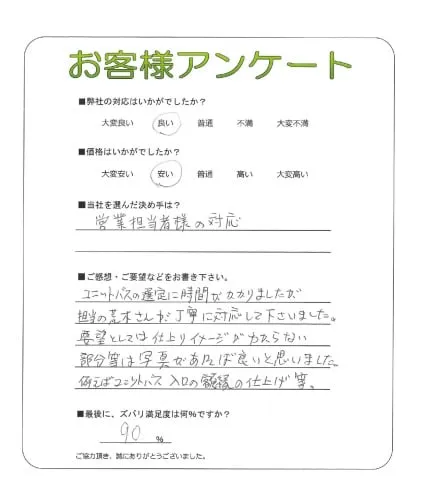 お客様アンケート
■弊社の対応はいかがでしたか？
大変良い 良い 普通 不満 大変不満
■価格はいかがでしたか？
大変安い 安い 普通 高い 大変高い
■当社を選んだ決め手は？
営業担当者様の対応
■ご感想・ご要望などをお書き下さい。
ユニットバスの選定に時間がかかりましたが
担当の荒木さんが丁寧に対応して下さいました。
要望としては仕上りイメージがわからない
部分等は写真があれば良いと思いました。
例えばユニットバス入口の額縁の仕上げ等。
■最後に、ズバリ満足度は何%ですか？
90 %
ご協力頂き、誠にありがとうございました。